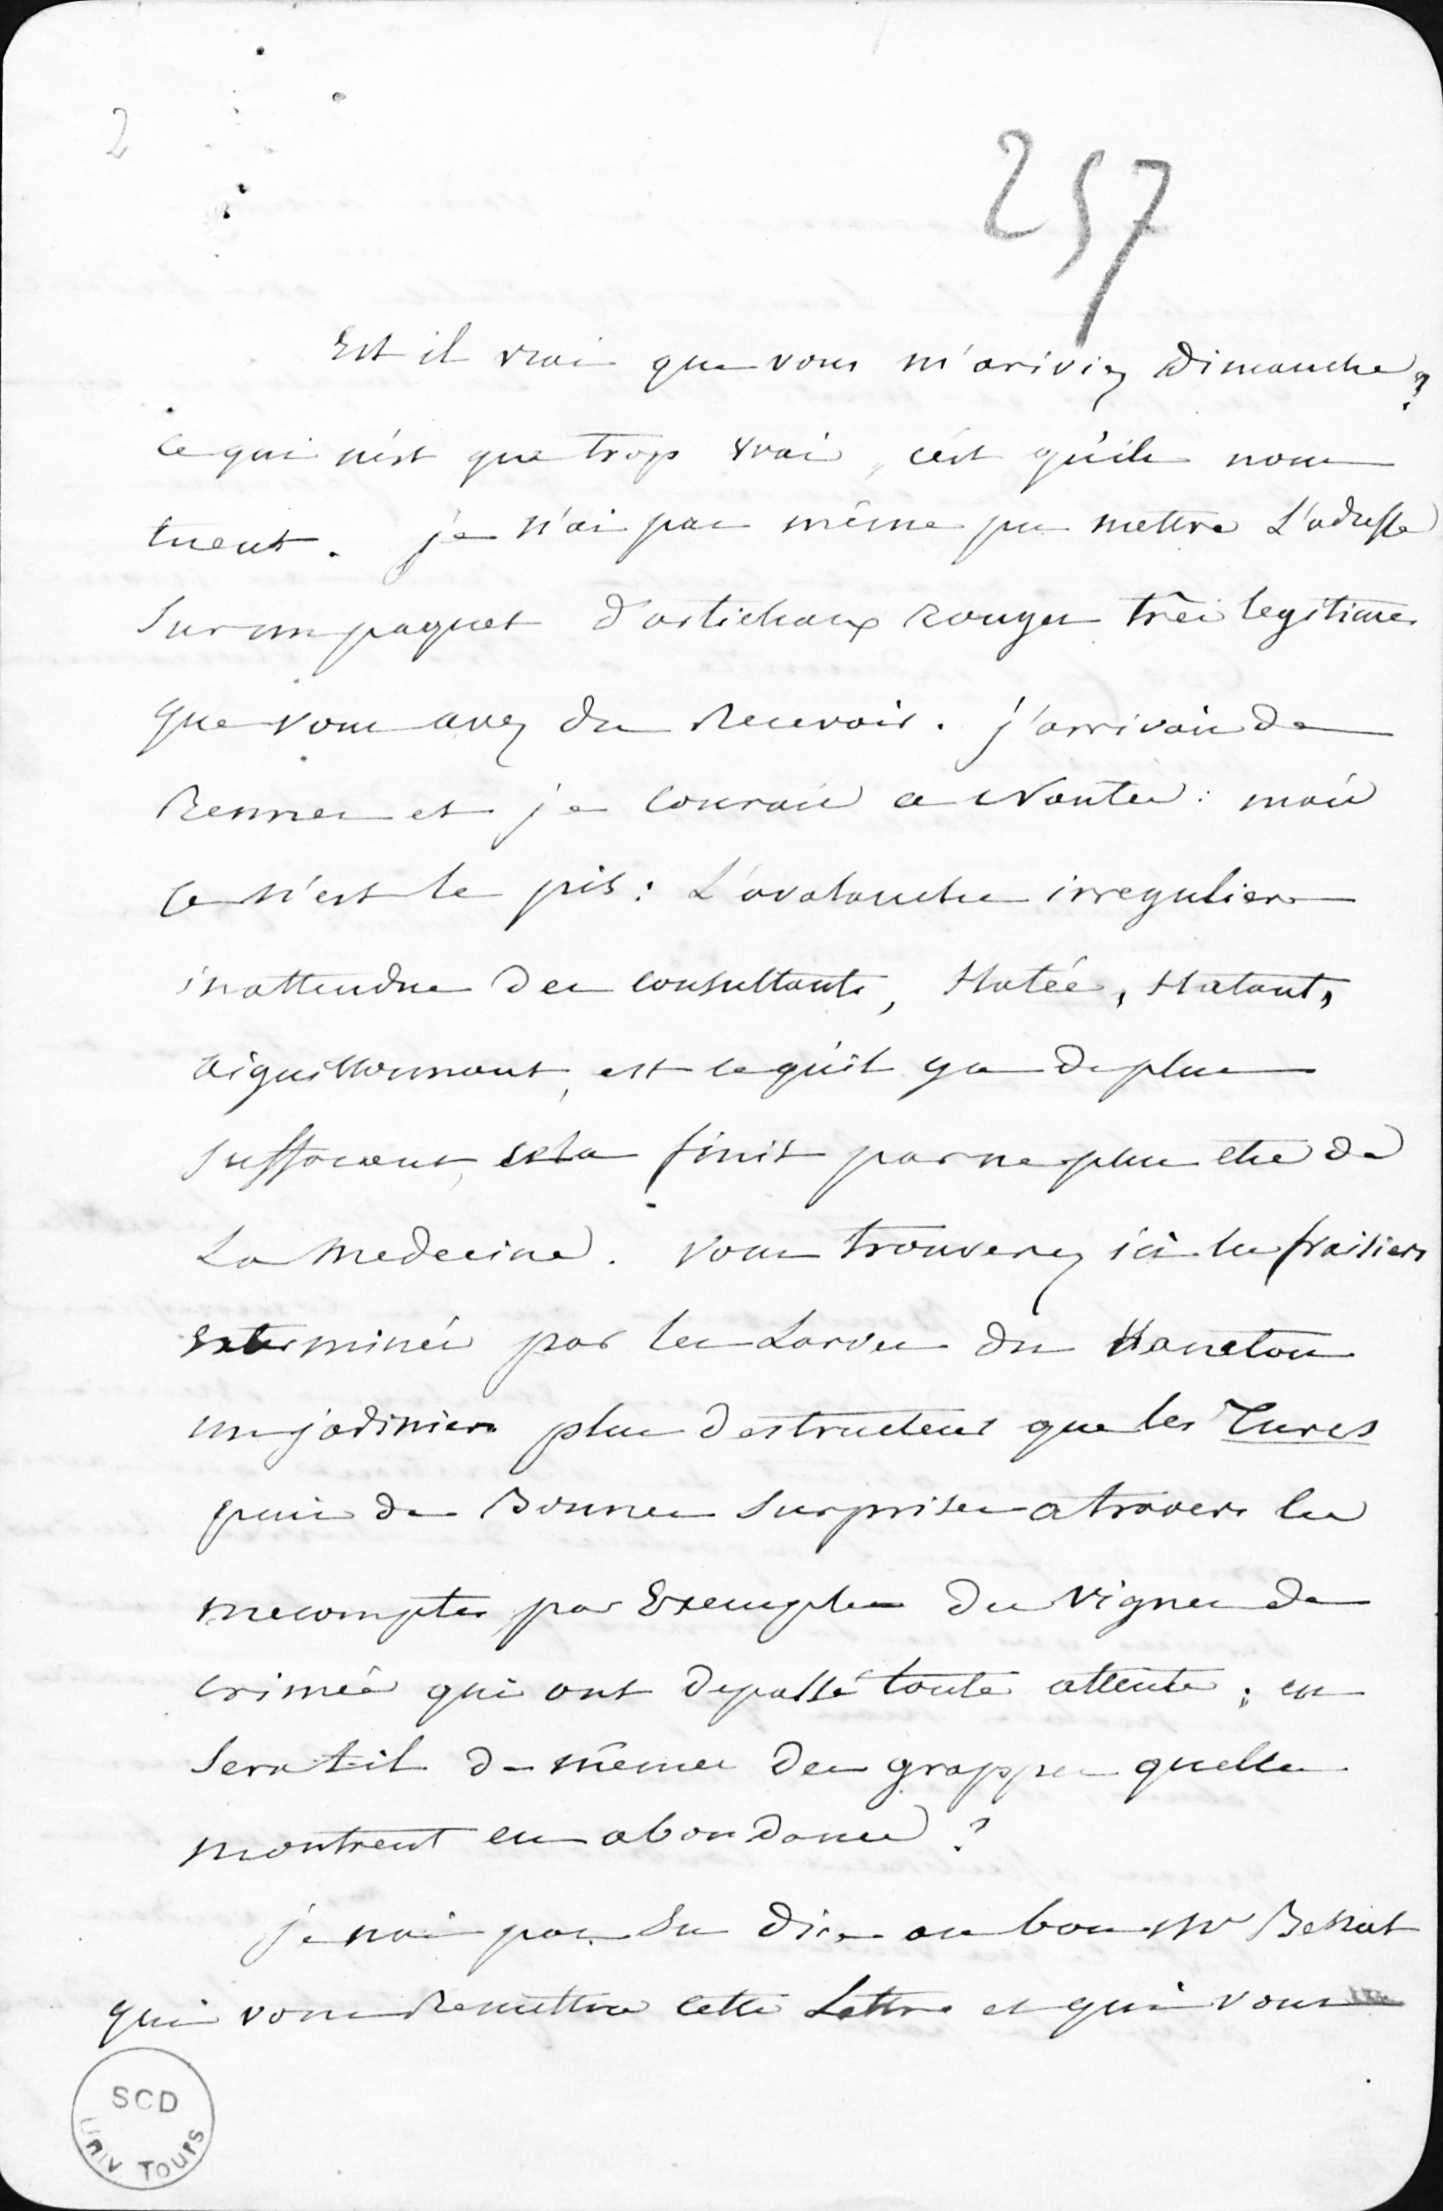 2
257
Est il vrai que vous m'ariviez Dimanche ?
ce qui n'est que trop vrai, c'est qu'ils nous
tuent. je n'ai pas même pu mettre L'adresse
sur un paquet d'artichaux rouges très legitimes
que vous avez du Recevoir. j'arrivais de
Rennes et je courais a Nantes : mais
ce n'est le pis : L'avalanche irreguliere
inattendue des consultants, Hatés, Hatant,
aiguillonnant, est ce qu'il y a de plus
suffocant, cela finit par ne plus etre de
La Medecine. vous trouverez ici les fraisiers
exterminés par les Larves du Hanneton
un jardinier plus destructeur que les Turcs
puis de Bonnes surprises a travers les
mecomptes par Exemples des vignes de
crimée qui ont depassé toute attente ; en
sera t-il de mêmes des grappes quelles
montrent en abondance ?
je n'ai pas su dire au bon Mr
qui vous Remettra cette Lettre et qui vous
SCD
UNIV TOURS